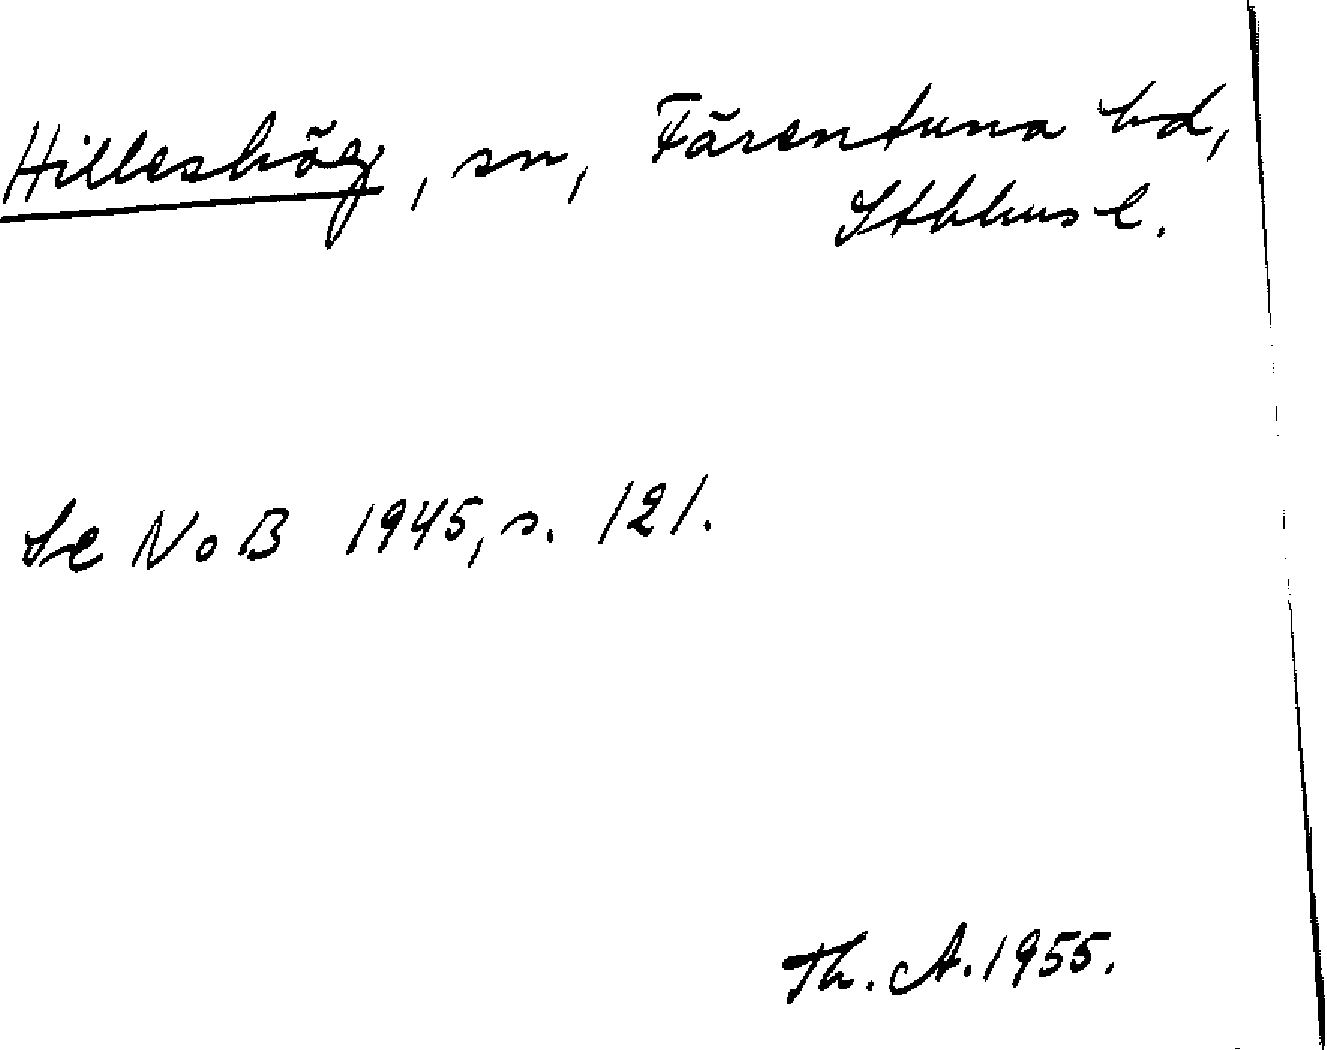 Hilleshög, sn, Färentuna hd,
Sthlms l.
Se NoB 1945, s. 121.
Th. A. 1955.